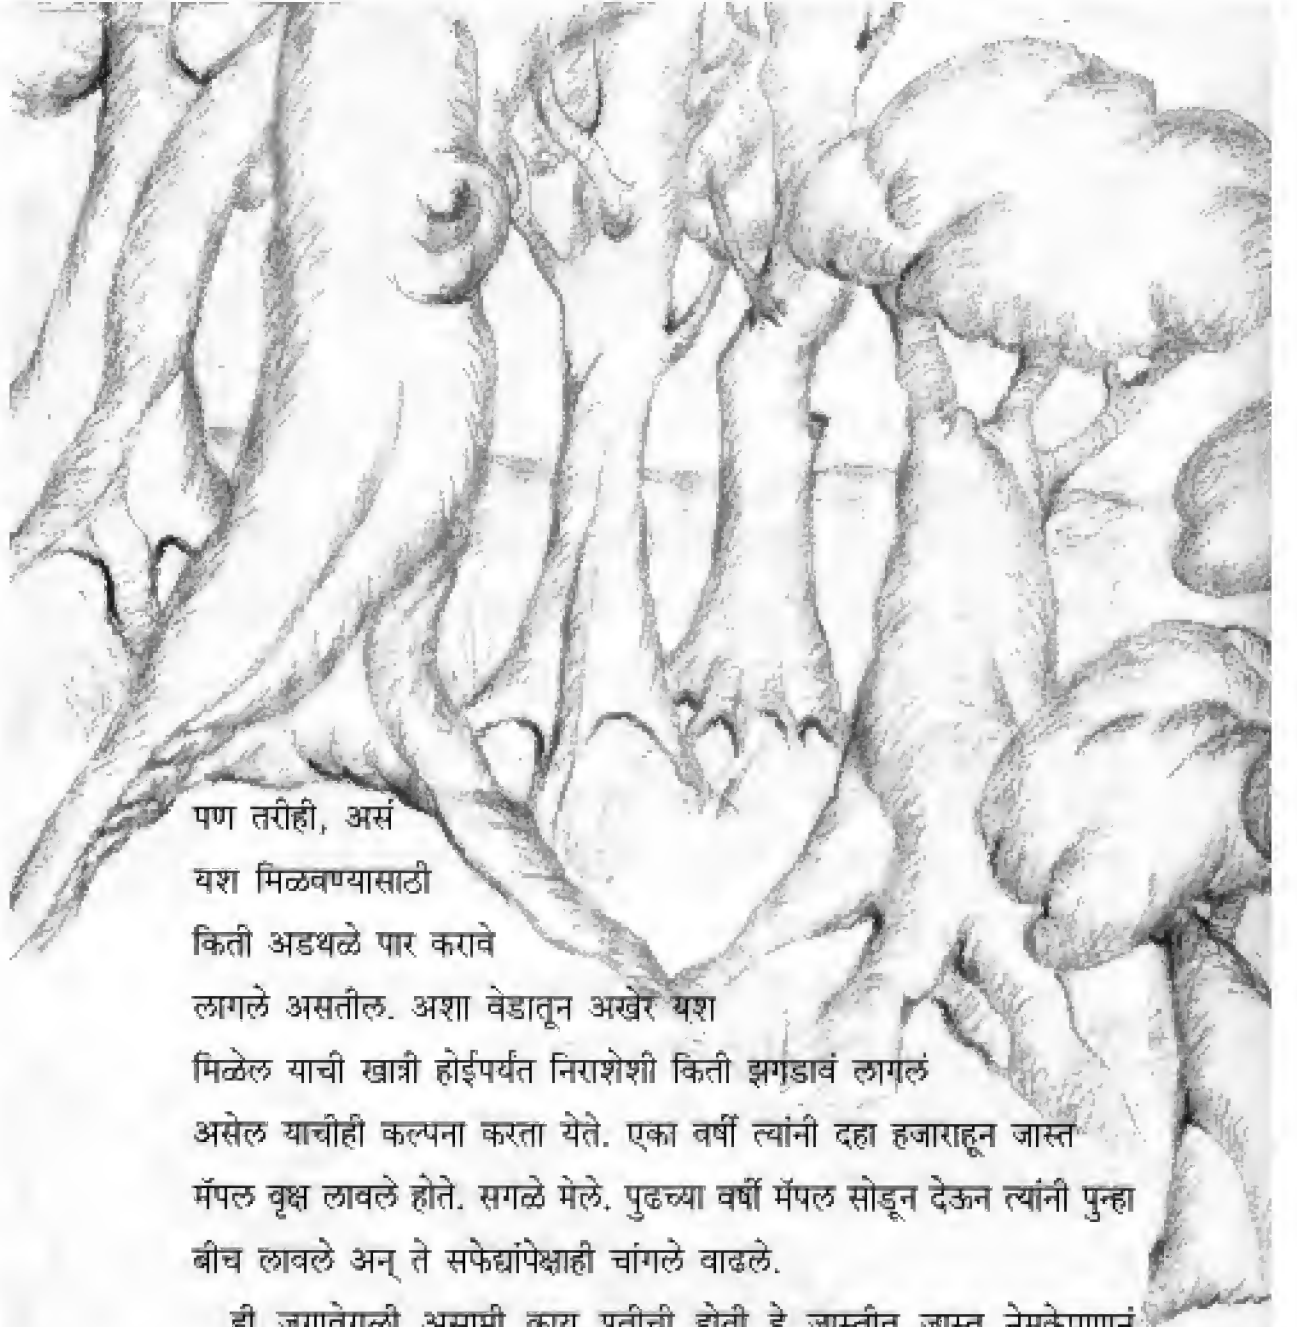 पण तरीही, असं
यश मिळवण्यासाठी
किती अडथळे पार करावे
लागले असतील. अशा वेडातून अखेर यश
मिळेल याची खात्री होईपर्यंत निराशेशी किती झगडावं लागलं
असेल याचीही कल्पना करता येते. एका वर्षी त्यांनी दहा हजाराहून जास्त
मॅपल वृक्ष लावले होते. सगळे मेले. पुढच्या वर्षी मॅपल सोडून देऊन त्यांनी पुन्हा
बीच लावले अन् ते सफेद्यांपेक्षाही चांगले वाढले.
ही जगावेगळी असामी काय प्रतीची होती हे जास्तीत जास्त नेमकेपणानं